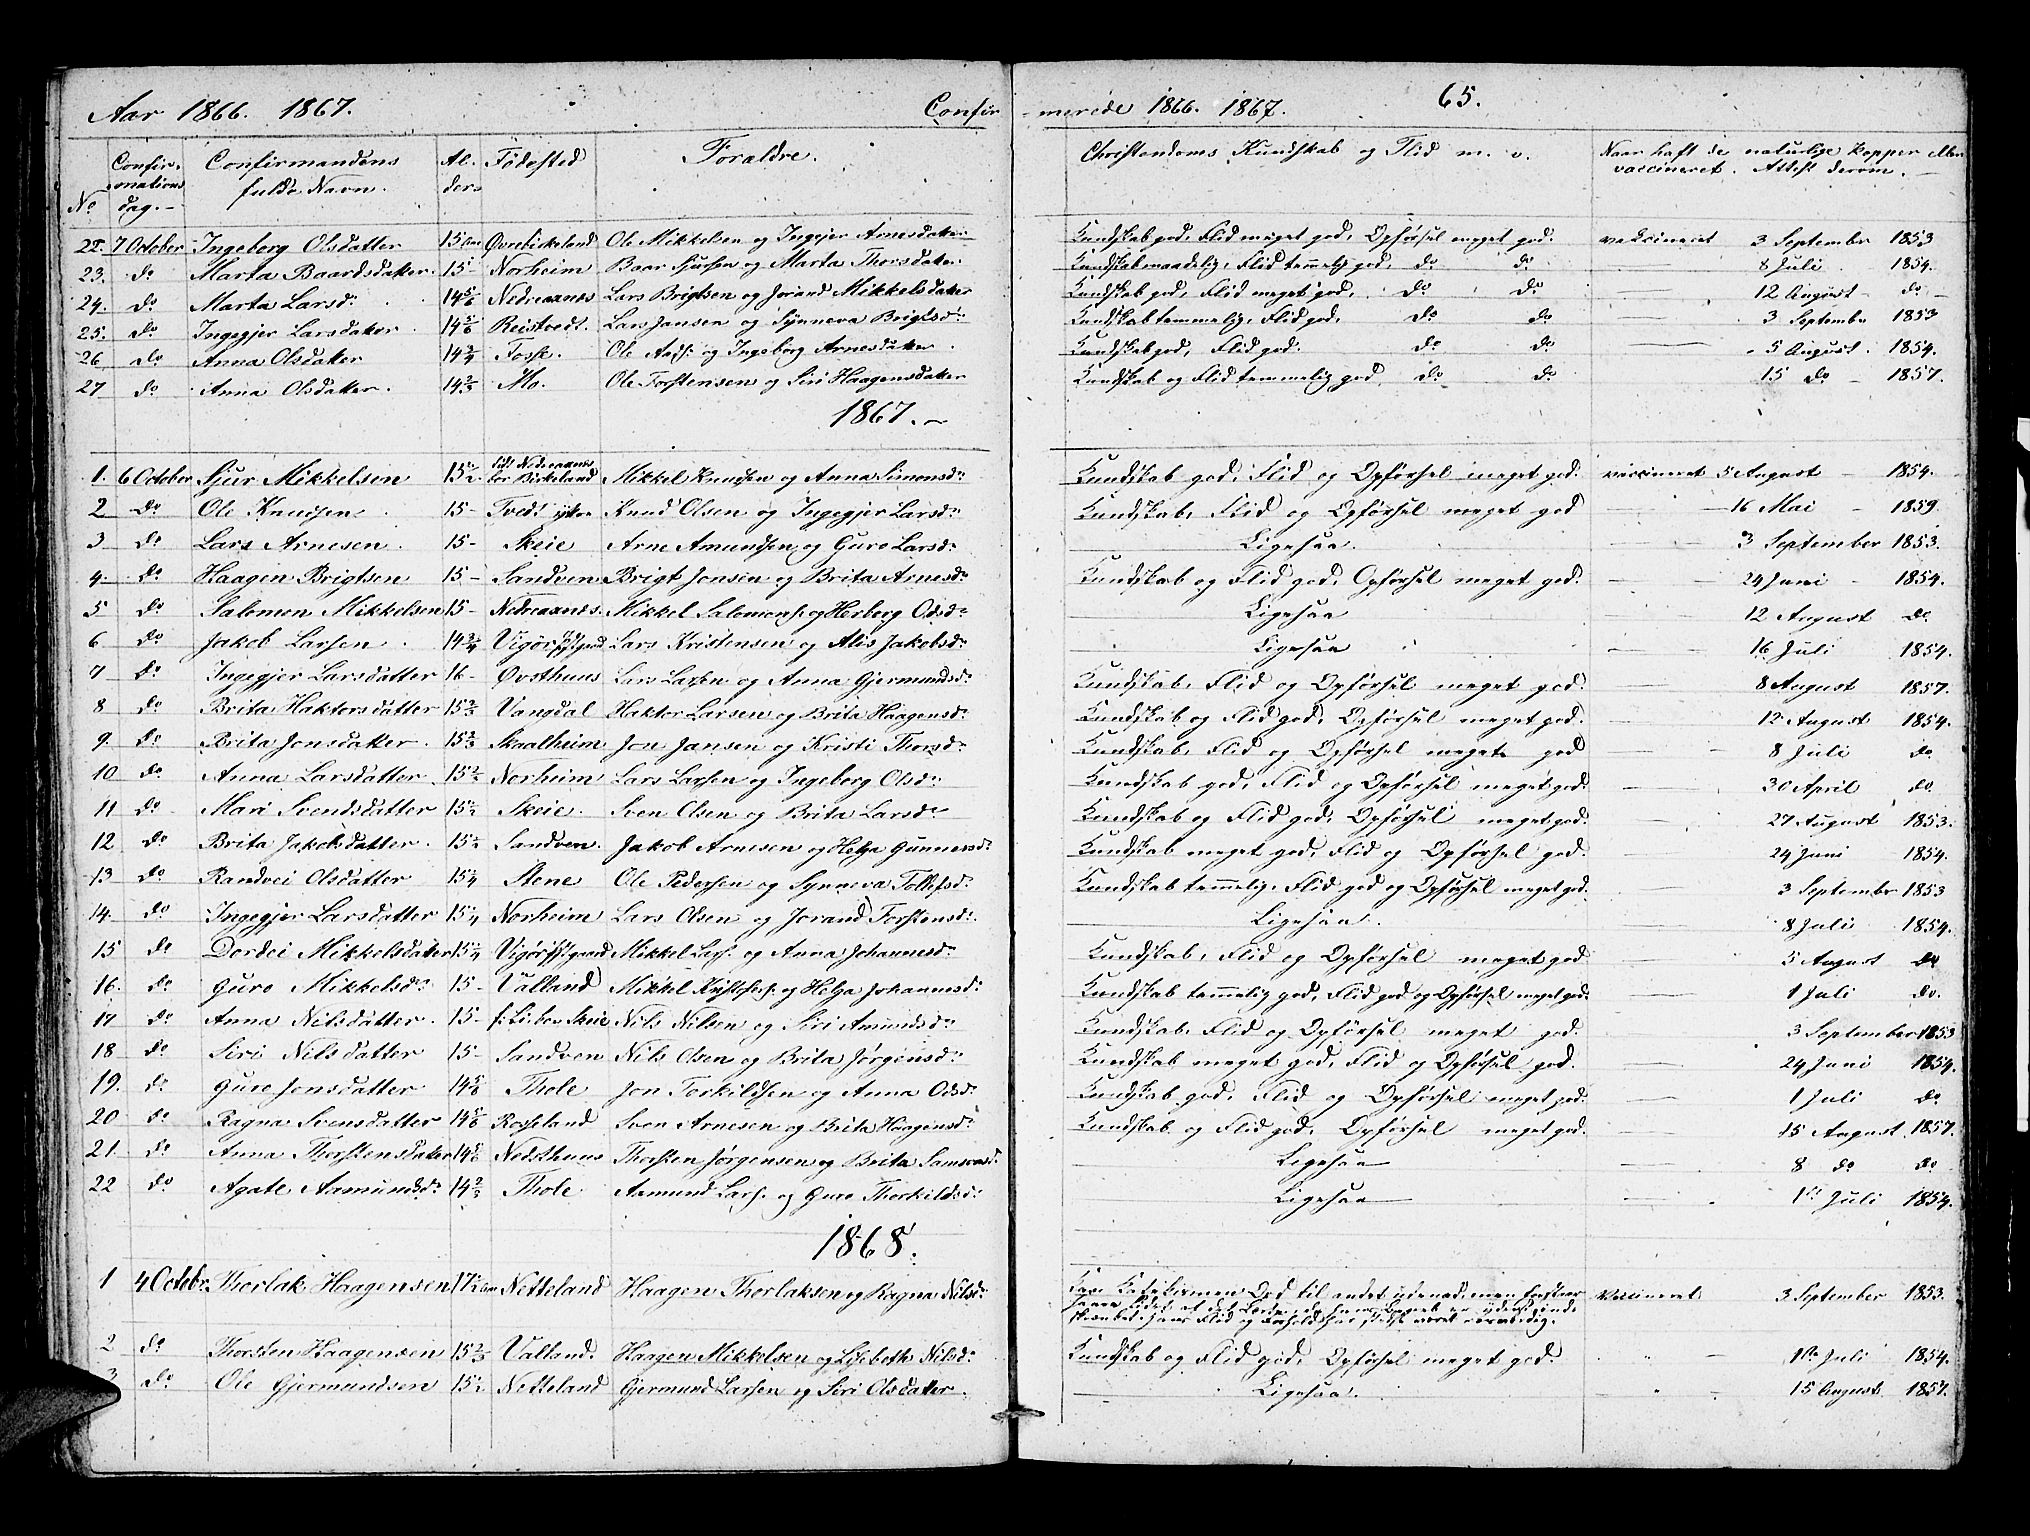 Aar 1866. 1867. Confir-merede 1866. 1867. 65.
No Confirmations dag. Confirmandens fulde Navn. Alder Fødested Foraldre. Christendoms Kundskab og Flid m. v. Naar haft de naturlige Kopper eller vaccineret. Attest derom.
22. 7 October Ingeborg Olsdatter 15 Øvrebirkeland Ole Mikkelsen og Ingejer Arnesdatter Kundskab god, Flid meget god, Opførsel meget god. vakcineret 3 September 1853
23. do Marta Baardsdatter 15 Norheim Baar Sjursen og Marta Thorsdatter Kundskab maadelig, Flid temmelig god, do do 8 Juli 1854.
24. do Marta Larsdr 14 5/6 Nedreaxnes Lars Brigtsen og Jorand Mikkelsdatter Kundskab god, Flid meget god, do do 12 August do
25. do Ingegjer Larsdatter 14 5/6 Reistvedt. Lars Jansen og Synneva Brigtsdr Kundskab temmelig, Flid god, do do 3 September 1853
26 do Anna Olsdatter 14 3/4 Fosse. Ole Aads. og Ingeborg Arnesdatter Kundskab god, Flid god. do do 5 August. 1854.
27 do Anna Olsdatter. 14 2/3 Mo. Ole Torstensen og Siri Haagensdatter Kundskab og Flid temmelig god do do 15 do 1857.
1867.
1. 6 October Sjur Mikkelsen 15 1/2 født Nedreaxnes bor Birkeland Mikkel Knudsen og Anna Simonsdr Kundskab god, Flid og Opførsel meget god. vaccineret 5 August 1854.
2 do Ole Knudsen 15 Tvedt ytre Knud Olsen og Ingegjer Larsdr Kundskab, Flid og Opførsel meget god 16 Mai 1859.
3 do Lars Arnesen. 15 Skeie Arne Amundsen og Guro Larsdr Ligesaa. 3 September 1853.
4. do Haagen Brigtsen 15 Sandven Brigt Jonsen og Brita Arnesdr Kundskab og Flid god, Opførsel meget god. 24 Juni 1854.
5 do Salomon Mikkelsen 15 Nedreaxnes. Mikkel Salomons. og Herborg Odsdr Ligesaa 12 August do.
6 do Jakob Larsen. 14 3/4 Vigør Lars Kristensen og Alis Jakobsdr Ligesaa 16 Juli 1854.
7 do Ingegjer Larsdatter 16 Øvsthuus Lars Larsen og Anna Gjermundsdr Kundskab, Flid og Opførsel meget god. 8 August 1857.
8 do Brita Haktorsdatter 15 2/3 Vangdal Haktor Larsen og Brita Haagensdr Kundskab og Flid god, Opførsel meget god. 12 August 1854.
9. do Brita Jonsdatter. 15 2/3 Skaalheim Jon Jansen og Kristi Thorsdr Kundskab, Flid og Opførsel meget god 8 Juli do
10 do Anna Larsdatter 15 2/3 Norheim Lars Larsen og Ingeborg Olsdr Kundskab god, Flid og Opførsel meget god. 30 April do
11 do Mari Svendsdatter 15 1/2 Skeie. Sven Olsen og Brita Larsdr Kundskab og Flid god, Opførsel meget god. 27 August 1853.
12 do Brita Jakobsdatter. 15 1/2 Sandven. Jakob Arnesen og Helga Gunnersdr Kundskab meget god, Flid og Opførsel god. 24 Juni 1854.
13 do Randvei Olsdatter 15 1/4 Stene Ole Pedersen og Synneva Tollefsdr Kundskab temmelig, Flid god og Opførsel meget god. 3 September 1853
14. do Ingegjer Larsdatter 15 1/4 Norheim Lars Olsen og Jorand Torstensdr Ligesaa. 8 Juli 1854.
15 do Dordei Mikkelsdatter 15 1/4 Mikkel Lars. og Anna Johannesdr Kundskab, Flid og Opførsel meget god 5 August do
16. do Guro Mikkelsdr 15 Valland Mikkel Kristofers. og Helga Johannesdr Kundskab temmelig god, Flid god og Opførsel meget god. 1 Juli do.
17 do Anna Nilsdatter. 15 bor Skeie Nils Nilsen og Siri Amundsdr Kundskab, Flid og Opførsel meget god. 3 September 1853
18 do Siri Nilsdatter 15 Sandven Nils Olsen og Brita Jørgensdr Kundskab meget god, Flid og Opførsel god. 24 Juni 1854.
19. do Guro Jonsdatter 14 5/6 Thole Jon Torkildsen og Anna Odsdr Kundskab god, Flid og Opførsel meget god. 1 Juli do
20 do Ragna Svensdatter 14 5/6 Rosseland Sven Arnesen og Brita Haagensdr Kundskab og Flid god, Opførsel meget god. 15 August 1857.
21. do Anna Thorstensdatter 14 5/6 Nedsthuus Thorsten Jørgensen og Brita Samsonsdr Ligesaa 8 do do
22 do Agate Aamundsdr 14 2/3 Thole Aamund Lars. og Guro Thorkildsdr Ligesaa 1st Juli 1854.
1868.
1 4 Octobr. Thorlak Haagensen 17 1/2 Netteland Haagen Thorlaksen og Ragna Nilsdr Kan Katekismen Ord til andet udenad, men fatter Vaccineret 3 September 1853.
2 do Thorsten Haagensen 15 2/3 Valland. Haagen Mikkelsen og Lisebeth Nilsdr Kundskab og Flid god, Opførsel meget god. 1ste Juli 1854.
3 do Ole Gjermundsen 15 1/2 Netteland Gjermund Larsen og Siri Olsdatter. Ligesaa. 15 August 1857.